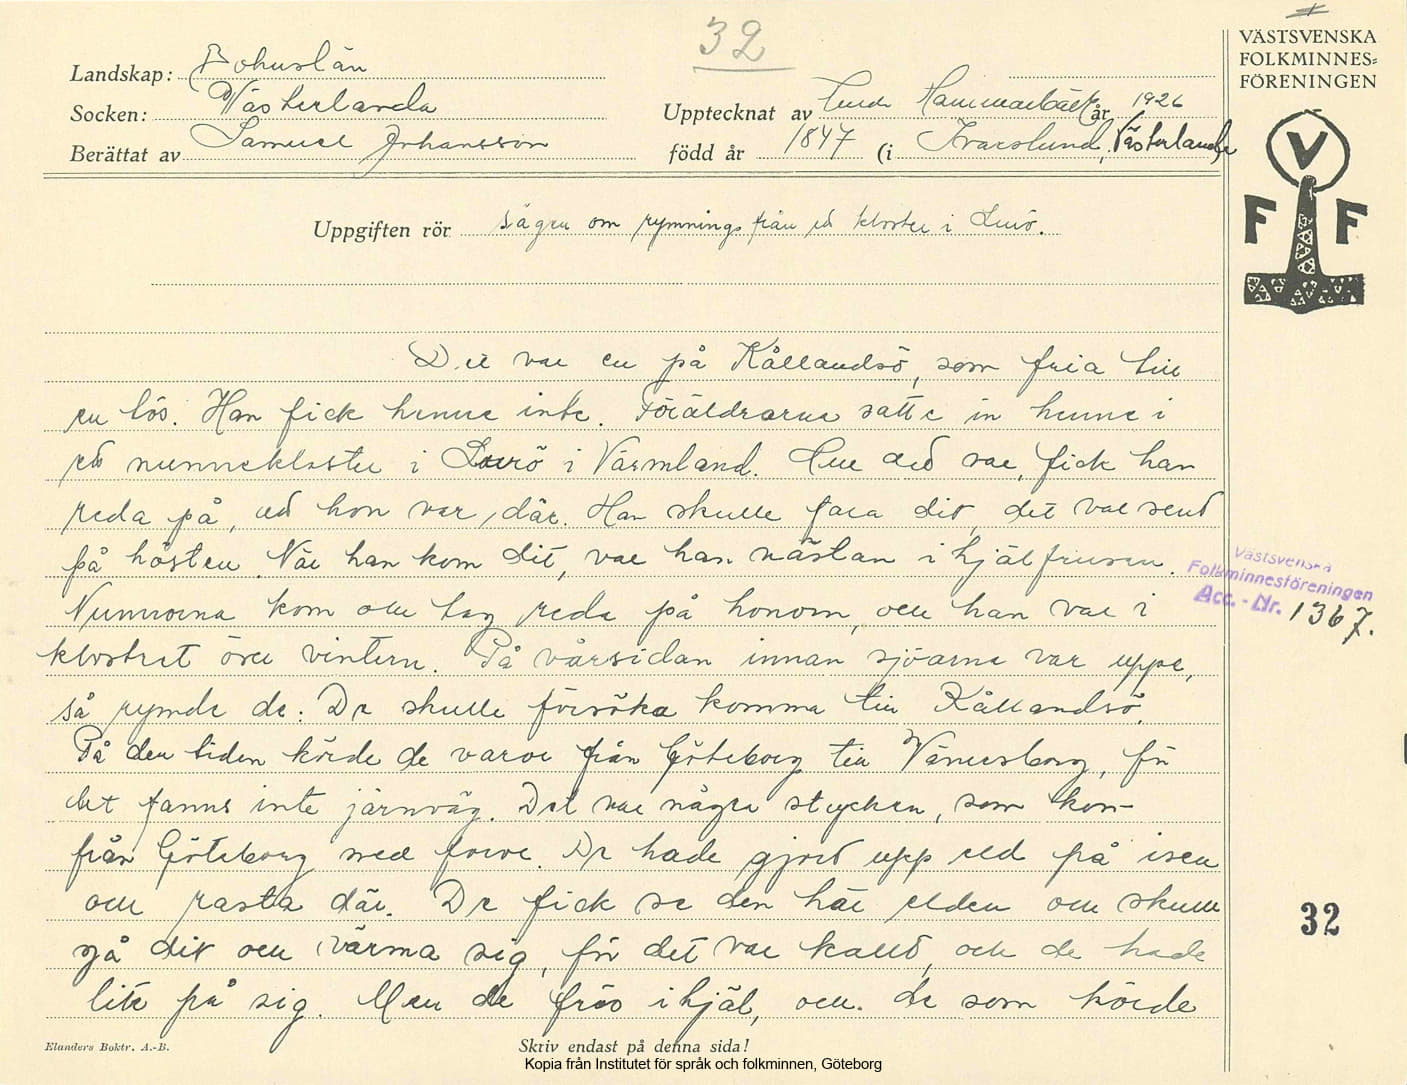 32
VÄSTSVENSKA
FOLKMINNES=
FÖRENINGEN
V
F F
Landskap: Bohuslän
Socken: Västerlanda
Upptecknat av Hammarbäck år 1926
Berättat av Samuel Johansson
född år 1847 (i Kvarslund, Västerlanda
Uppgiften rör sägen om rymnings från ett kloster i Lurö.
Det var en på Kållandsö, som fria till
en tös. Han fick henne inte. Föräldrarna satte in henne i
ett nunnekloster i Lurö i Värmland. Hur det var, fick han
reda på, att hon var där. Han skulle fara dit, det var sent
på hösten. När han kom dit, var han nästan ihjälfrusen.
Nunnorna kom och tog reda på honom, och han var i
klostret över vintern. På vårsidan innan sjöarna var uppe,
så rymde de. De skulle försöka komma till Kållandsö.
På den tiden körde de varor från Göteborg till Vänersborg, för
det fanns inte järnväg. Det var några stycken, som kom
från Göteborg med foror. De hade gjort upp eld på isen
och rasta där. De fick se den här elden och skulle
gå dit och värma sig, för det var kallt, och de hade
lite på sig. Men de frös ihjäl, och de som körde
Västsvenska
Folkminnesföreningen
Acc. - Nr. 1367.
32
Elanders Boktr. A.-B.
Skriv endast på denna sida!
Kopia från Institutet för språk och folkminnen, Göteborg